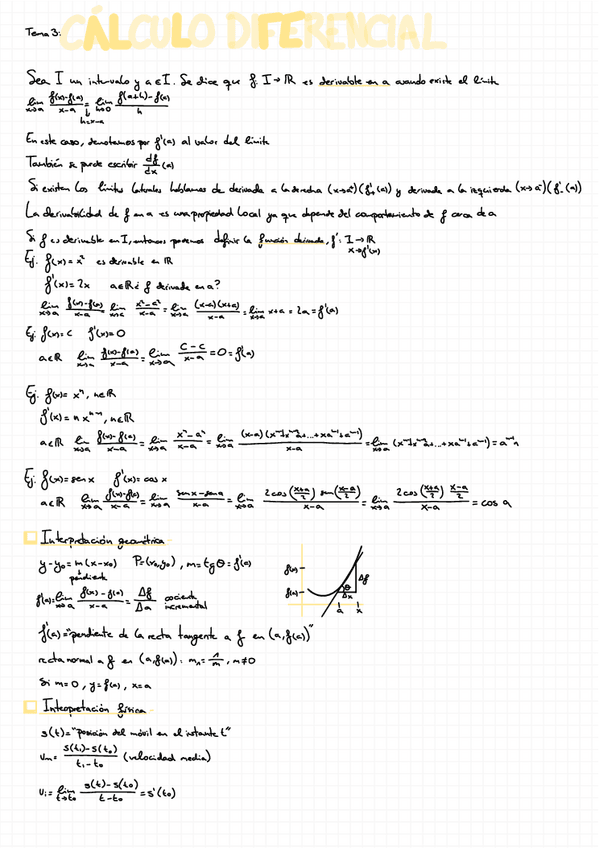 Tema 3: CÁLCULO DIFERENCIAL
Sea I un intervalo y a ∈ I. Se dice que f: I → ℝ es derivable en a cuando existe el límite
lim x→a (f(x)-f(a))/(x-a) = lim h→0 (f(a+h)-f(a))/h
h=x-a
En este caso, denotamos por f'(a) al valor del límite
También se puede escribir df/dx (a)
Si existen los límites laterales hablamos de derivada a la derecha (x→a⁺)(f'₊(a)) y derivada a la izquierda (x→a⁻)(f'₋(a))
La derivabilidad de f en a es una propiedad local ya que depende del comportamiento de f cerca de a
Si f es derivable en I, entonces podemos definir la función derivada, f': I → ℝ
x→f'(x)
Ej. f(x)= x² es derivable en ℝ
f'(x)= 2x a∈ℝ ¿ f derivable en a?
lim x→a (f(x)-f(a))/(x-a) = lim x→a (x²-a²)/(x-a) = lim x→a ((x-a)(x+a))/(x-a) = lim x→a x+a = 2a = f'(a)
Ej: f(x)= C f'(x)=0
a∈ℝ lim x→a (f(x)-f(a))/(x-a) = lim x→a (C-C)/(x-a) = 0 = f'(a)
Ej. f(x)= xⁿ, n∈ℝ
f'(x)= n xⁿ⁻¹, n∈ℝ
a∈ℝ lim x→a (f(x)-f(a))/(x-a) = lim x→a (xⁿ-aⁿ)/(x-a) = lim x→a ((x-a)(xⁿ⁻¹+xⁿ⁻²a+...+xaⁿ⁻²+aⁿ⁻¹))/(x-a) = lim x→a (xⁿ⁻¹+xⁿ⁻²a+...+xaⁿ⁻²+aⁿ⁻¹) = aⁿ⁻¹n
Ej: f(x)= sen x f'(x)= cos x
a∈ℝ lim x→a (f(x)-f(a))/(x-a) = lim x→a (sen x - sen a)/(x-a) = lim x→a (2 cos((x+a)/2) sen((x-a)/2))/(x-a) = lim x→a (2 cos((x+a)/2) (x-a)/2)/(x-a) = cos a
Interpretación geométrica
y-y₀ = m(x-x₀) P=(x₀,y₀), m = tg θ = f'(a)
pendiente
f'(a)= lim x→a (f(x)-f(a))/(x-a) = Δf/Δa cociente incremental
f(x) f(a) θ Δx Δf a x
f'(a)="pendiente de la recta tangente a f en (a,f(a))"
recta normal a f en (a,f(a)): mₙ = 1/m, m≠0
Si m=0, y=f(a), x=a
Interpretación física
s(t)="posición del móvil en el instante t"
Vm = (s(t₁)-s(t₀))/(t₁-t₀) (velocidad media)
Vi = lim t→t₀ (s(t)-s(t₀))/(t-t₀) = s'(t₀)